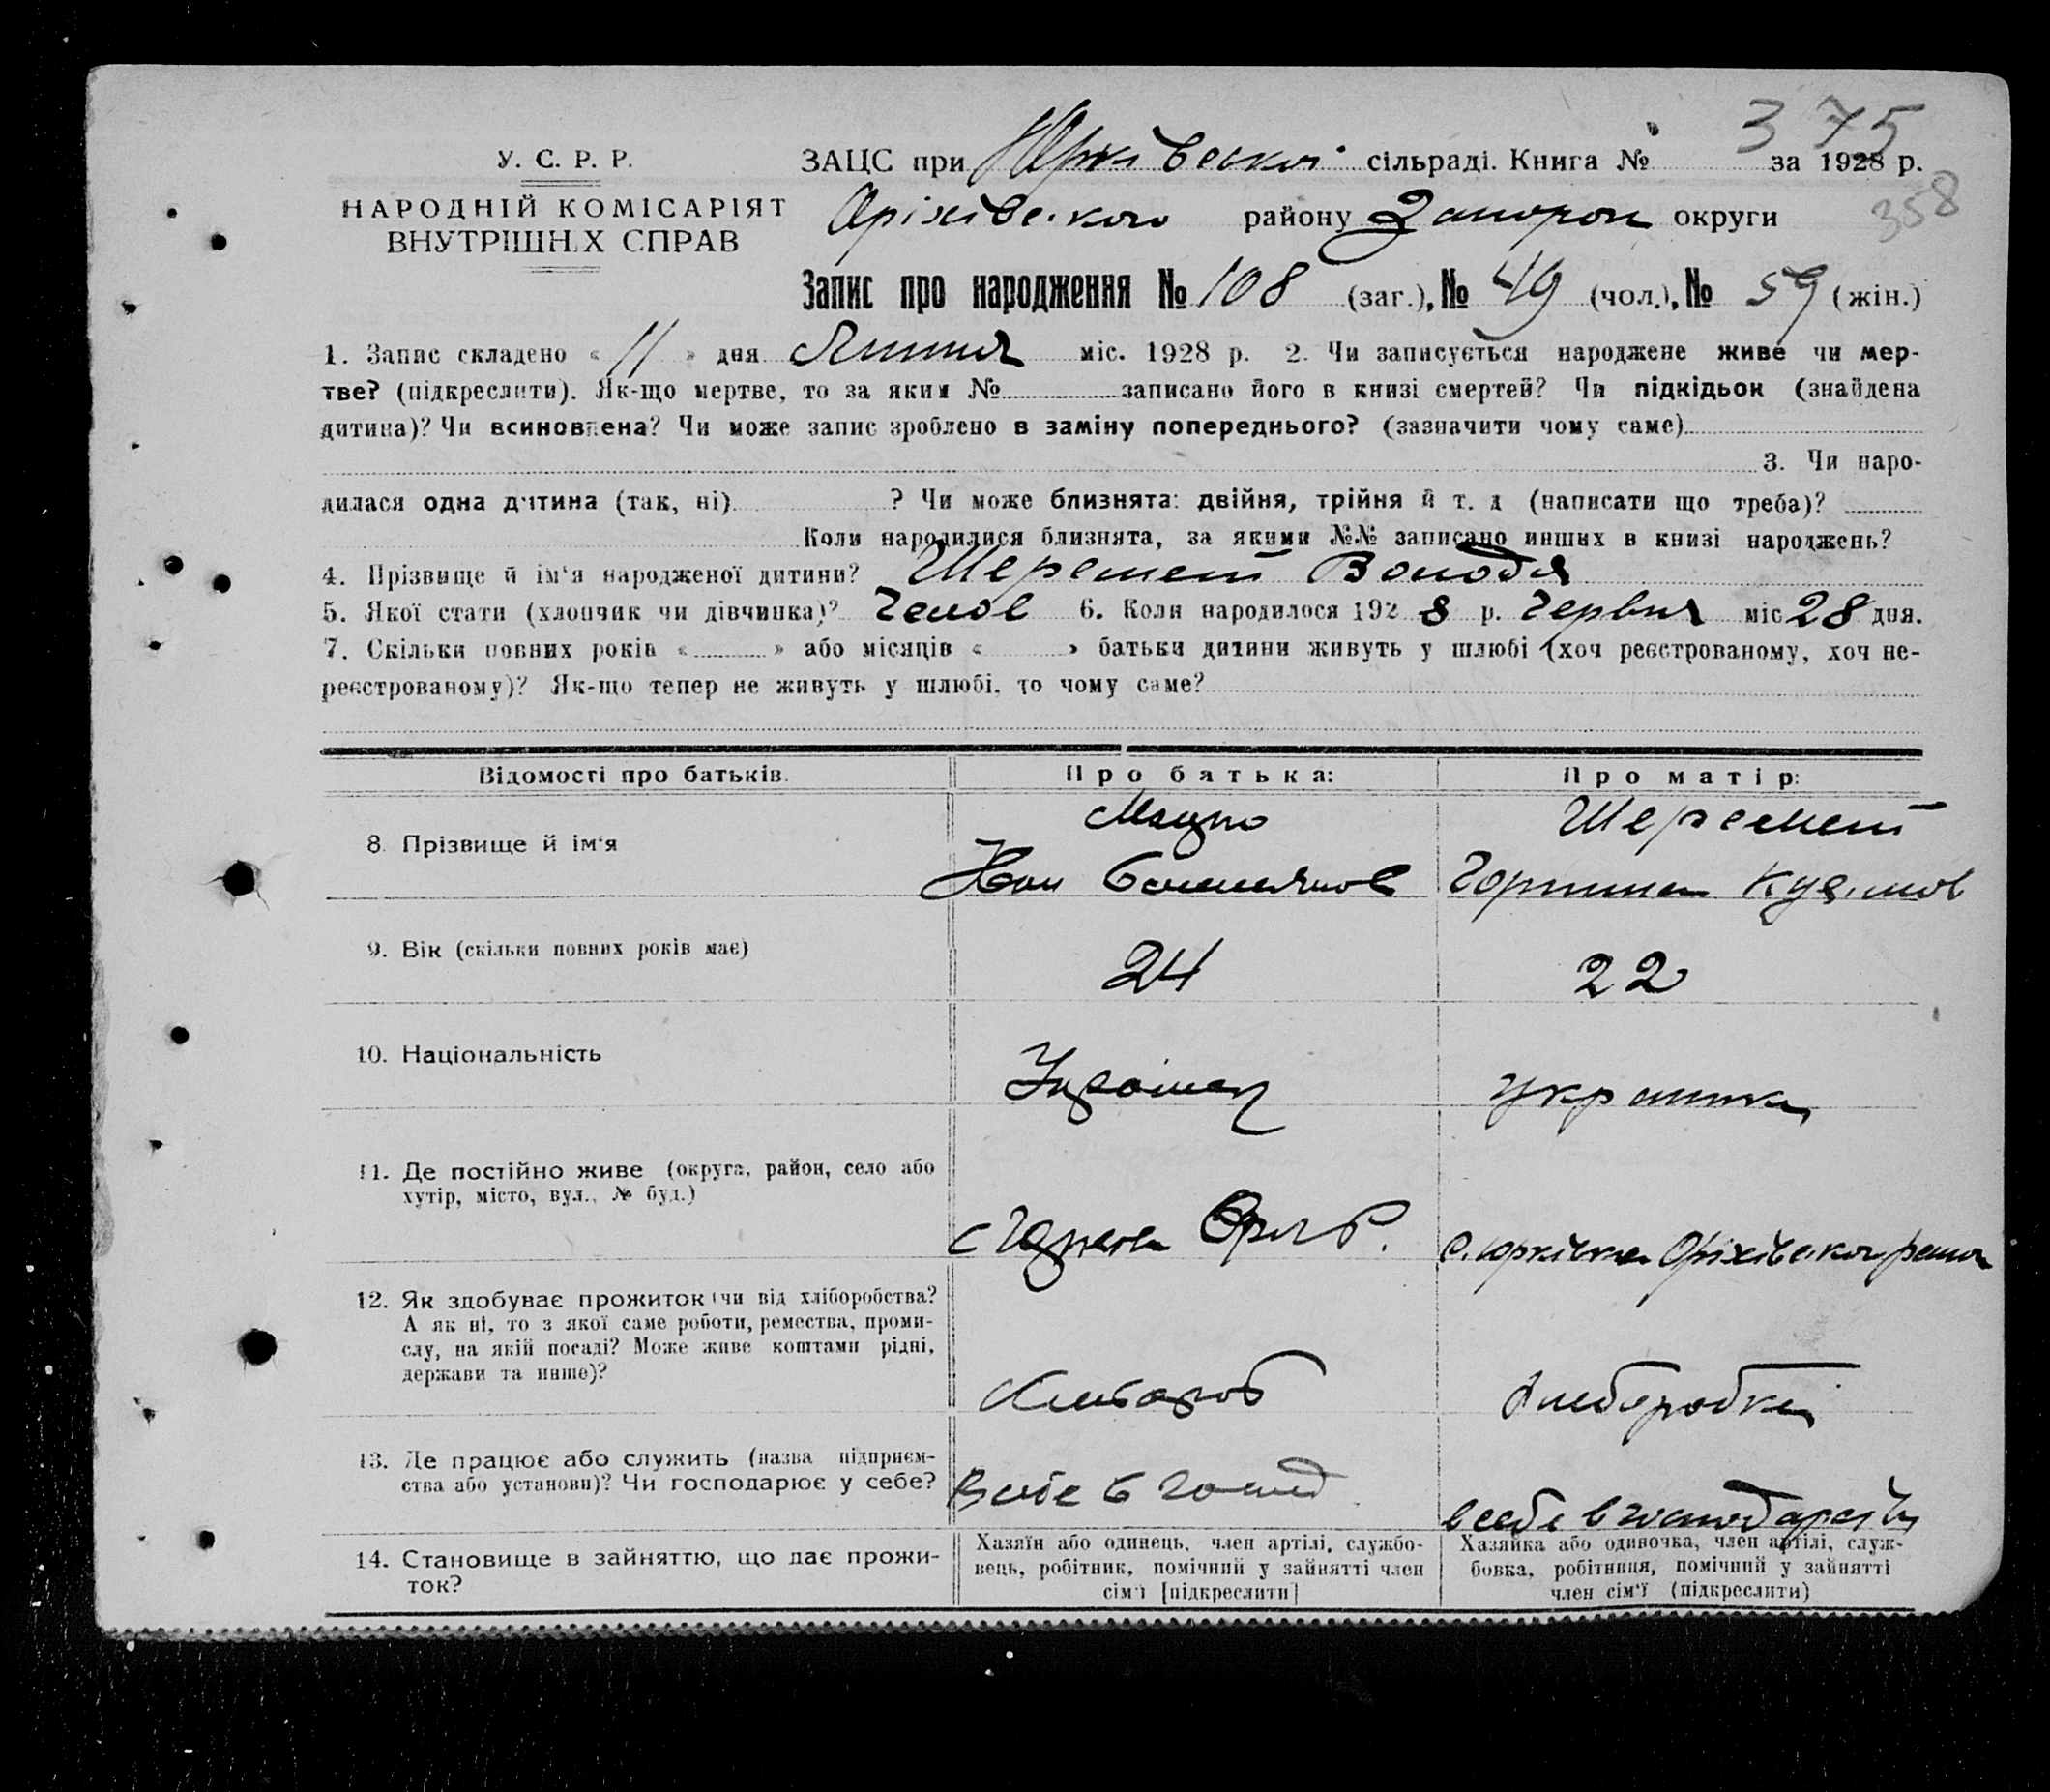 375
У. С. Р. Р.
ЗАЦС при Юрківській сільраді. Книга № за 1928 р.
358
НАРОДНІЙ КОМІСАРІЯТ
ВНУТРІШН.Х СПРАВ
Оріхівського району Запорож округи
Запис про народження № 108 (заг.), № 49 (чол.), № 59 (жін.)
1. Запис складено « 11 » дня Липня міс. 1928 р. 2. Чи записується народжене живе чи мер-
тве? (підкреслити). Як-що мертве, то за яким № записано його в книзі смертей? Чи підкідьок (знайдена
дитина)? Чи всиновлена? Чи може запис зроблено в заміну попереднього? (зазначити чому саме)
3. Чи наро-
дилася одна дитина (так, ні) ? Чи може близнята: двійня, трійня й т. д (написати що треба)?
Коли народилися близнята, за якими №№ записано инших в книзі народжень?
4. Прізвище й ім'я народженої дитини? Шеремет Володя
5. Якої стати (хлопчик чи дівчинка)? Челов 6. Коли народилося 192 8 р. Червня міс 28 дня.
7. Скільки повних років « » або місяців « » батьки дитини живуть у шлюбі (хоч реєстрованому, хоч не-
реєстрованому)? Як-що тепер не живуть у шлюбі, то чому саме?
Відомості про батьків. Про батька: Про матір:
Мацко Шеремет
8. Прізвище й ім'я
Іван Горпина
9. Вік (скільки повних років має) 24 22
10. Національність Українка
11. Де постійно живе (округа, район, село або
хутір, місто, вул., № буд.)
с. Юрківка Оріхівского району
12. Як здобуває прожиток (чи від хліборобства?
А як ні, то з якої саме роботи, ремества, проми-
слу, на якій посаді? Може живе коштами рідні,
держави та инше)?
Хлебороб Хлеборобка
13. Де працює або служить (назва підприєм-
ства або установи)? Чи господарює у себе?
В себе в господ в себе в господарстві
14. Становище в зайняттю, що дає прожи-
ток?
Хазяїн або одинець, член артілі, службо-
вець, робітник, помічний у зайнятті член
сім'ї [підкреслити]
Хазяйка або одиночка, член артілі, служ-
бовка, робітниця, помічний у зайнятті
член сім'ї (підкреслити)